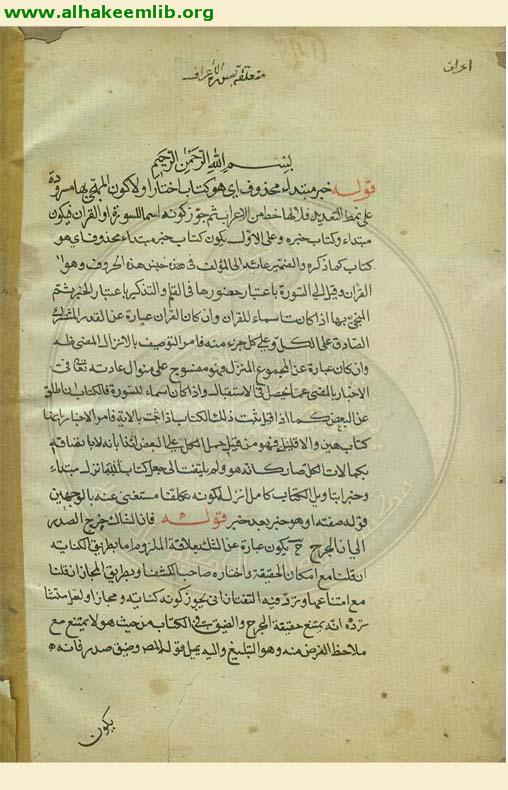 www.alhakeemlib.org
اعراف
متعلقة بسورة الأعراف
بسم الله الرحمن الرحيم
قوله خبر مبتداء محذوف اي هو كتاب اختار اولا كون المتهجي بها مسرودة
على نمط التعديد فلا لها خط من الاعراب ثم جوز كونه اسما للسورة او القران فيكون
مبتداء وكتاب خبره وعلى الاول يكون كتاب خبر مبتداء محذوف اي هو
كتاب كما ذكره والضمير عائد الى المؤلف في هذه جنس هذه الحروف وهو
القران وقيل الى السورة باعتبار حضورها في القلم والتذكير باعتبار الخبر ثم
بها اذا كانت اسماء للقران وان كان القران عبارة عن القدر المشترك
الصادق على الكل وعلى كل جزء منه فامر التوصيف بالانزال المضي ظ
وان كان عبارة عن المجموع المنزل على منوال عادته تعالى في
الاخبار بالمضي عما يحصل في الاستقبال واذا كان اسماء للسورة فالكتاب ان اطلق
عن البعض كما اذا قيل ثبت ذلك بالكتاب اذا ثبت بالاية فامر الاخبار
كتاب هين والا فليكن فهو من قبيل حمل الكل على البعض بانه
الكل صار كانه هو ولم يلتفت الى جعل كتاب انزل مبتداء
وخبرا بتاويل الكتاب كامل انزل لكونه مستغنى عنه بالوجهين
قوله صفته او هو خبر بعد خبر قوله فان الشاك حرج الصدر
يكون عبارة عن الشك بعلاقة الملزوم اما بطريق الكناية
ان قلنا مع امكان الحقيقة واختاره صاحب الكشف او بطريق المجاز ان قلنا
مع امتناعها وتردد فيه التفتازاني بجوز كونه كناية ومجازا ولعل منشا
تردده انه يمتنع حقيقة الحرج والضيق في الكتاب من حيث هو ولا يمتنع مع
ملاحظ الغرض منه وهو التبليغ واليه يميل قوله وضيق صدر فانه
يكون